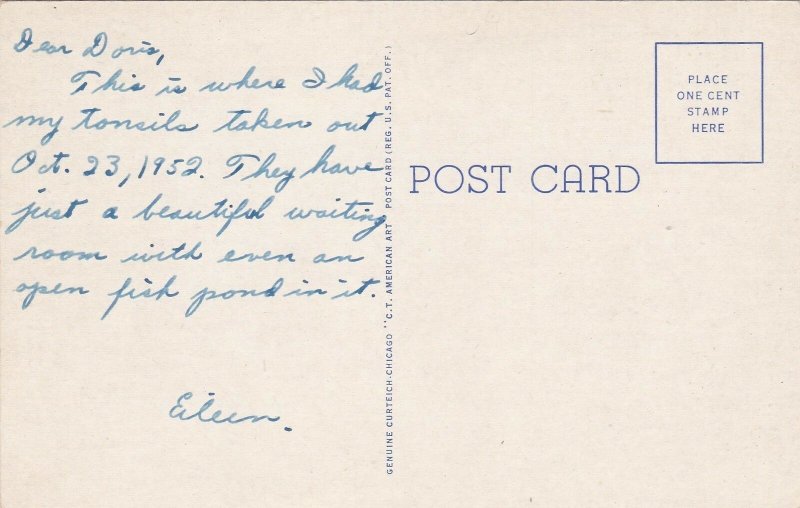 Dear Doris,
This is where I had
my tonsils taken out
Oct. 23, 1952. They have
just a beautiful waiting
room with even an
open fish pond in it.
Eileen.
GENUINE CURTEICH-CHICAGO "C.T. AMERICAN ART POST CARD (REG. U.S. PAT. OFF.)
POST CARD
PLACE
ONE CENT
STAMP
HERE